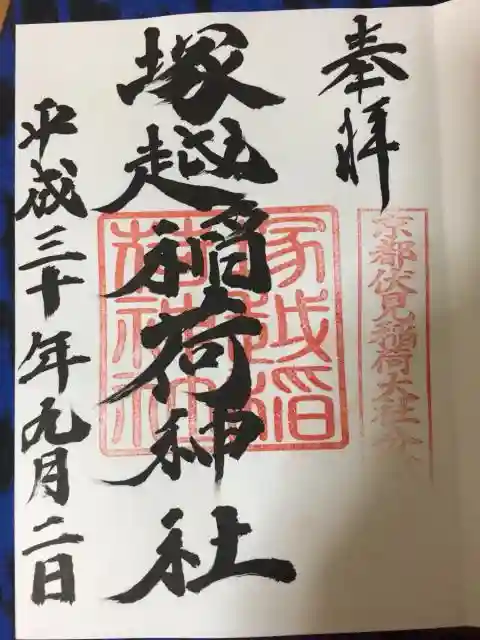 奉拝
京都伏見稲荷大社
塚越稲荷神社
塚越稲荷神社
平成三十年九月二日